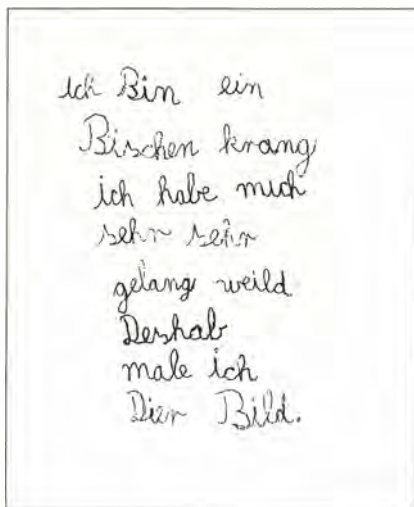 ich Bin ein
Bischen krang
ich habe mich
sehr sehr
gelang weild
Deshab
male ich
Dier Bild.